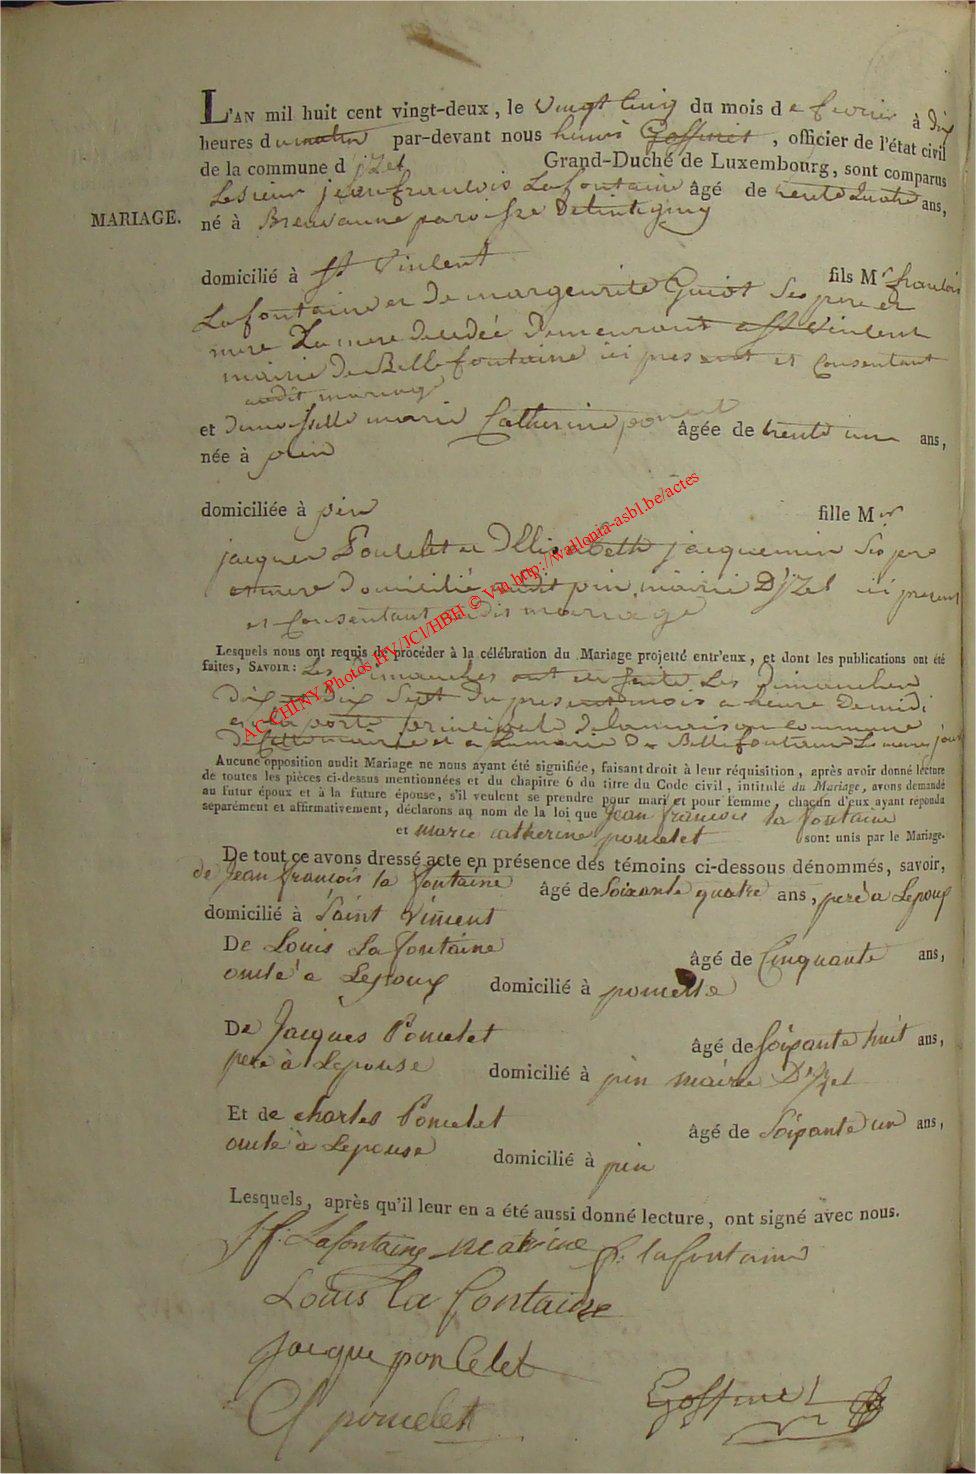 L'AN mil huit cent vingt-deux, le Vingt Cinq du mois de fevrier à dix
heures du matin par-devant nous henri Goffinet, officier de l'état civil
de la commune d'jzel Grand-Duché de Luxembourg, sont comparus
Le sieur jean francois Lafontaine âgé de trente quatre ans,
MARIAGE. né à Breuvanne paroisse de tintigny
domicilié à St Vincent fils Mr francois
Lafontaine et de marguerite Guiot Ses pere et
mere La mere decedée demeurant a St Vincent
mairie de Bellefontaine ici present et Consentant
audit mariage
et demoiselle marie Catherine poncelet âgée de trente une ans,
née à pin
domiciliée à pin fille Mr
jacques Poncelet et d'Elisabeth jacquemin Ses pere
et mere domicilié audit pin mairie D'jzel ici present
et Consentant audit mariage
Lesquels nous ont requis de procéder à la célébration du Mariage projetté entr'eux, et dont les publications ont été
faites, SAVOIR: Les Dimanches ont été faite Les Dimanches
Dix et dix Sept du present mois a heure de midi
a la porte principale de la maison commune
de cette mairie et a La mairie de Bellefontaine Le meme jour
Aucune opposition audit Mariage ne nous ayant été signifiée, faisant droit à leur réquisition, après avoir donné lecture
de toutes les pièces ci-dessus mentionnées et du chapitre 6 du titre du Code civil, intitulé du Mariage, avons demandé
au futur époux et à la future épouse, s'il veulent se prendre pour mari et pour femme, chacun d'eux ayant répondu
séparément et affirmativement, déclarons au nom de la loi que Jean francois la fontaine
et marie catherine poncelet sont unis par le Mariage.
De tout ce avons dressé acte en présence des témoins ci-dessous dénommés, savoir,
de Jean francois la fontaine âgé de Soixante quatre ans, peré a Lepoux
domicilié à Saint Vincent
De Louis La fontaine âgé de Cinquante ans,
oncle a Lepoux domicilié à poncelle
De Jacques Poncelet âgé de Soixante huit ans,
pere à Lepouse domicilié à pin mairie D'Jzel
Et de charles Poncelet âgé de Soixante un ans,
oncle à Lepouse domicilié à pin
Lesquels, après qu'il leur en a été aussi donné lecture, ont signé avec nous.
J. f. Lafontaine f. lafontaine
Louis la fontaine
jacque poncelet
C poncelet Goffinet
ACCHINY Photos HV/JCl/HBH © Vin http://wallonia-asbl.be/actes